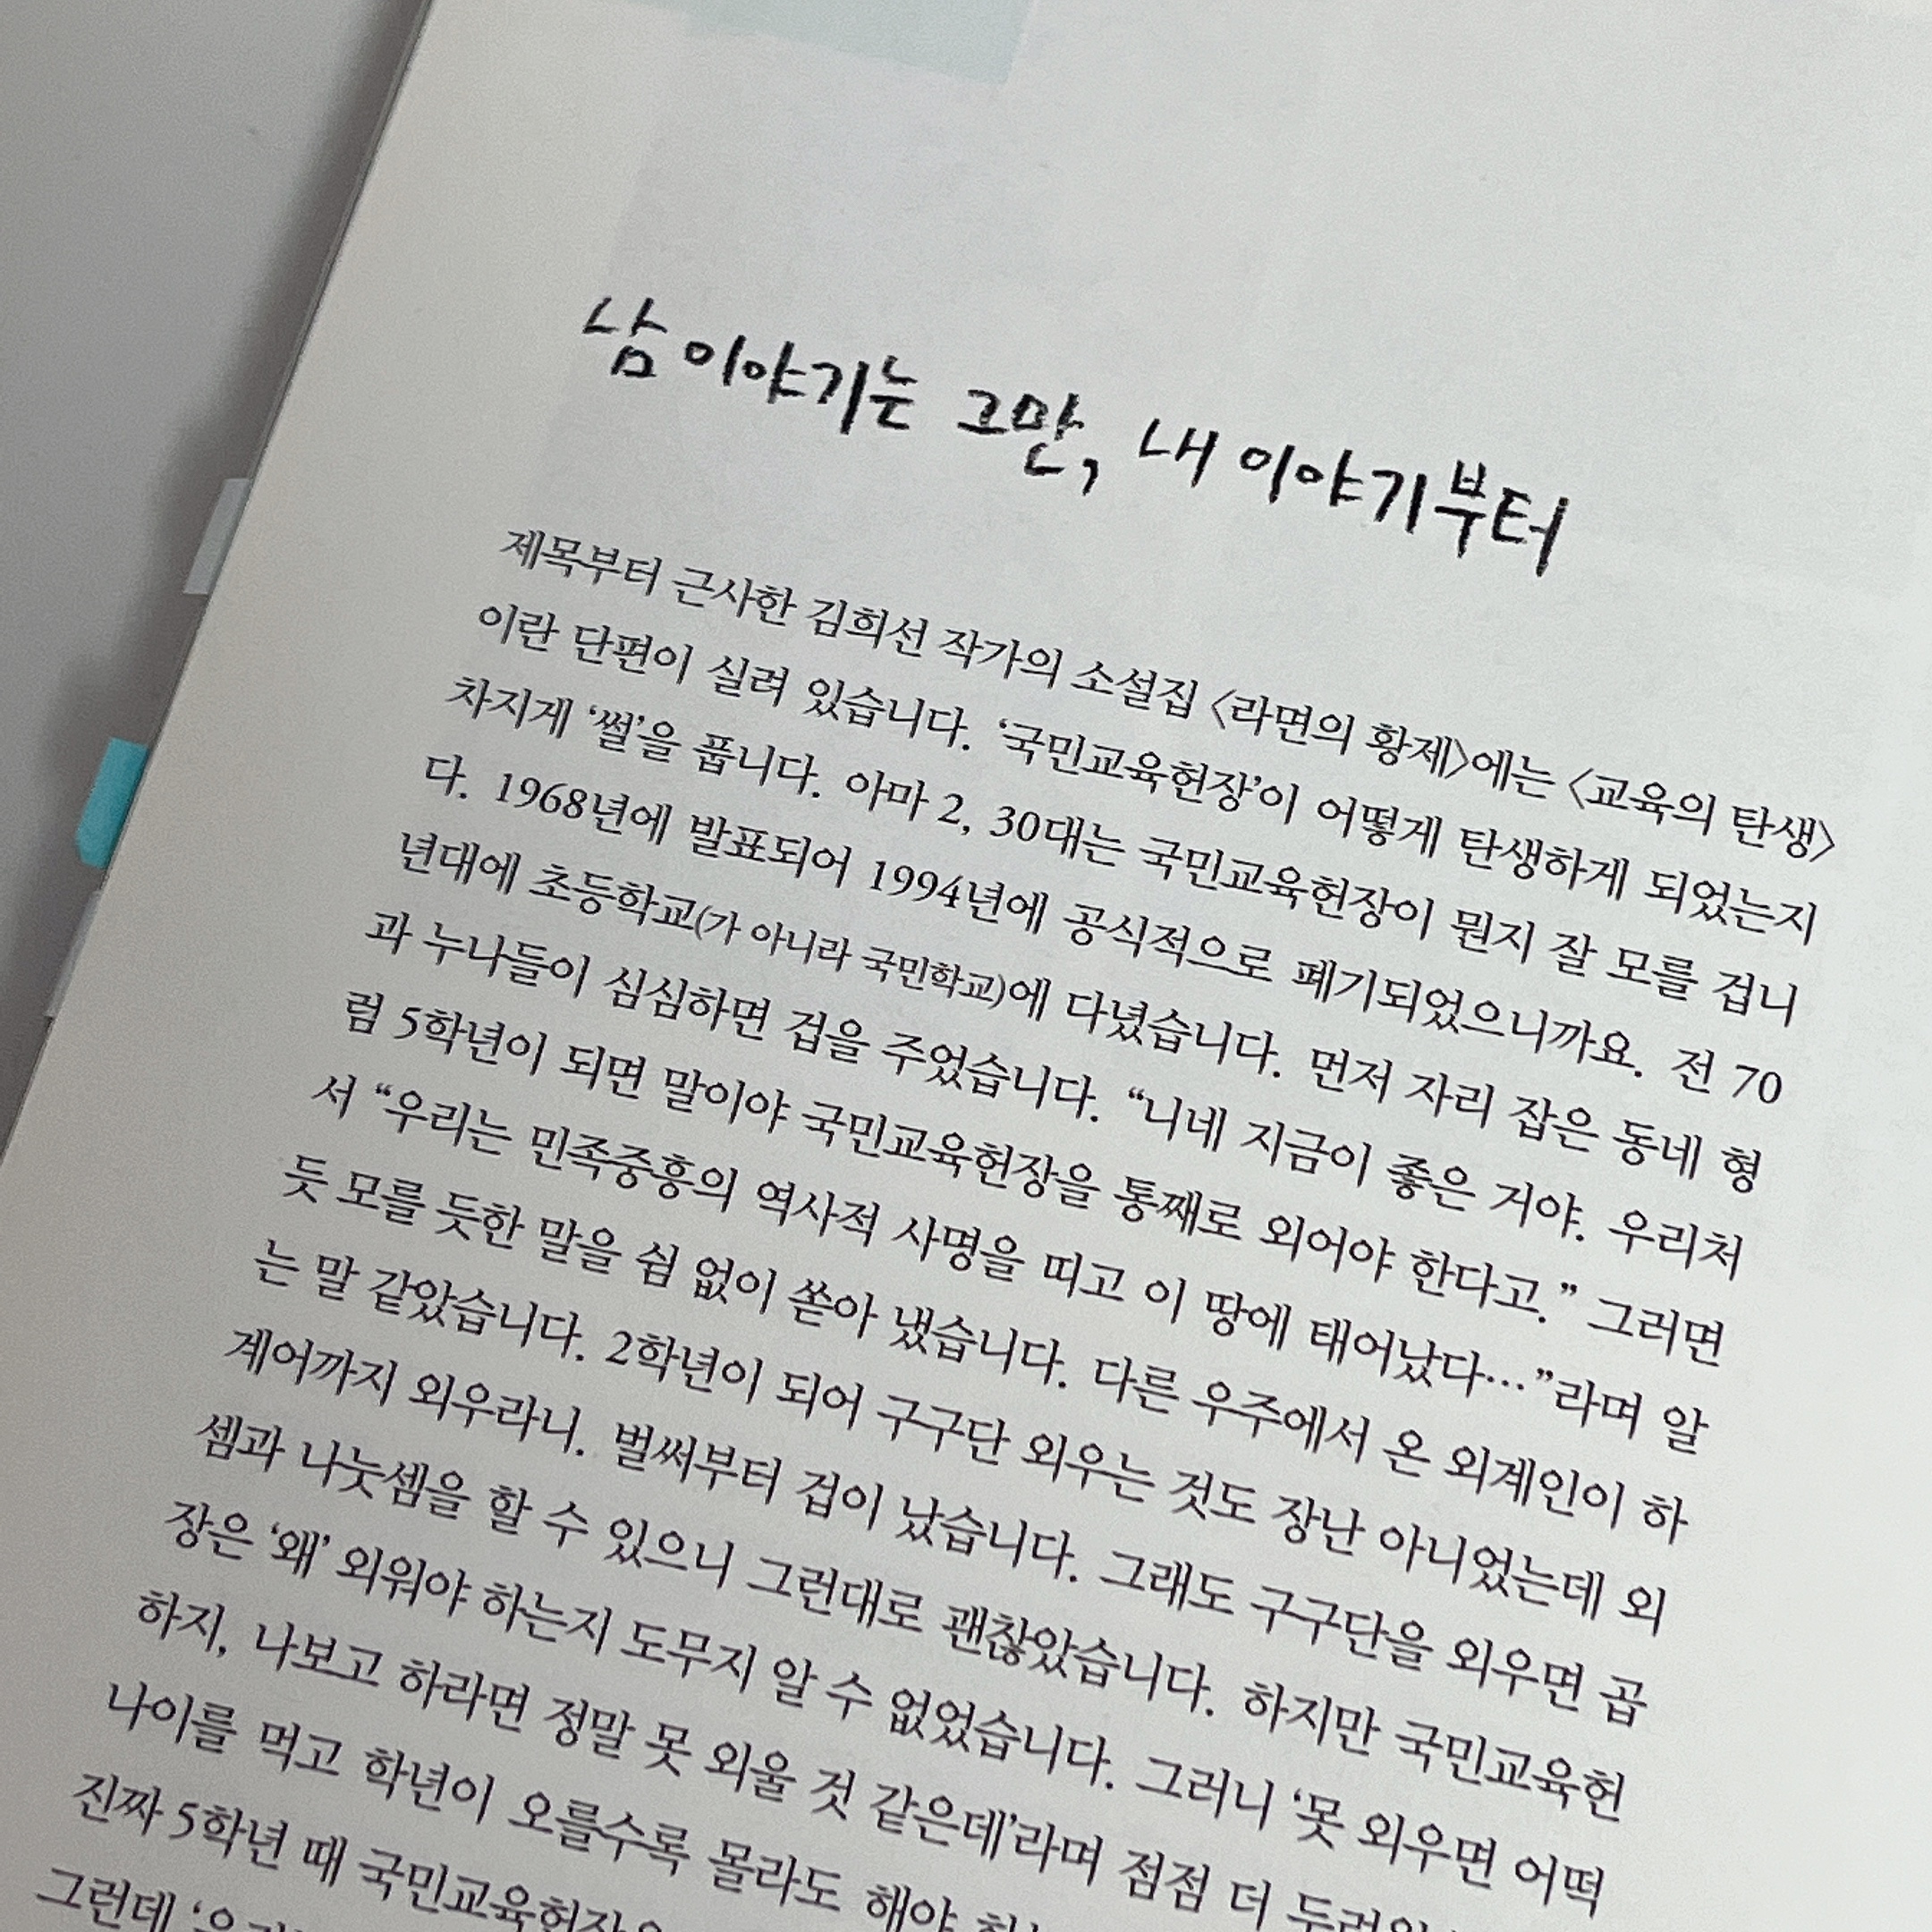 남 이야기는 그만, 내 이야기부터
제목부터 근사한 김희선 작가의 소설집 〈라면의 황제〉에는 〈교육의 탄생〉
이란 단편이 실려 있습니다. ‘국민교육헌장’이 어떻게 탄생하게 되었는지
차지게 ‘썰’을 풉니다. 아마 2, 30대는 국민교육헌장이 뭔지 잘 모를 겁니
다. 1968년에 발표되어 1994년에 공식적으로 폐기되었으니까요. 전 70
년대에 초등학교(가 아니라 국민학교)에 다녔습니다. 먼저 자리 잡은 동네 형
과 누나들이 심심하면 겁을 주었습니다. “니네 지금이 좋은 거야. 우리처
럼 5학년이 되면 말이야 국민교육헌장을 통째로 외어야 한다고.” 그러면
서 “우리는 민족중흥의 역사적 사명을 띠고 이 땅에 태어났다…”라며 알
듯 모를 듯한 말을 쉼 없이 쏟아 냈습니다. 다른 우주에서 온 외계인이 하
는 말 같았습니다. 2학년이 되어 구구단 외우는 것도 장난 아니었는데 외
계어까지 외우라니. 벌써부터 겁이 났습니다. 그래도 구구단을 외우면 곱
셈과 나눗셈을 할 수 있으니 그런대로 괜찮았습니다. 하지만 국민교육헌
장은 ‘왜’ 외워야 하는지 도무지 알 수 없었습니다. 그러니 ‘못 외우면 어떡
하지, 나보고 하라면 정말 못 외울 것 같은데’라며 점점 더
나이를 먹고 학년이 오를수록 몰라도 해야
진짜 5학년 때 국민교육헌장을
그런데